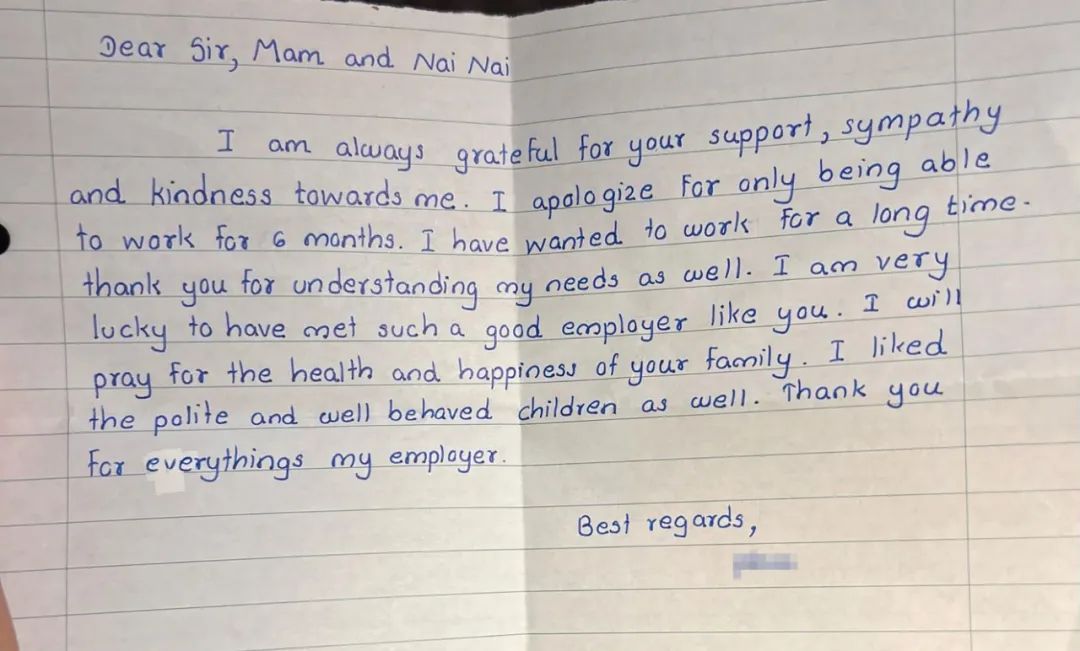 Dear Sir, Mam and Nai Nai
I am always grateful for your support, sympathy
and kindness towards me. I apologize For only being able
to work for 6 months. I have wanted to work for a long time.
thank you for understanding my needs as well. I am very
lucky to have met such a good employer like you. I will
pray for the health and happiness of your family. I liked
the polite and well behaved children as well. Thank you
For everythings my employer.
Best regards,